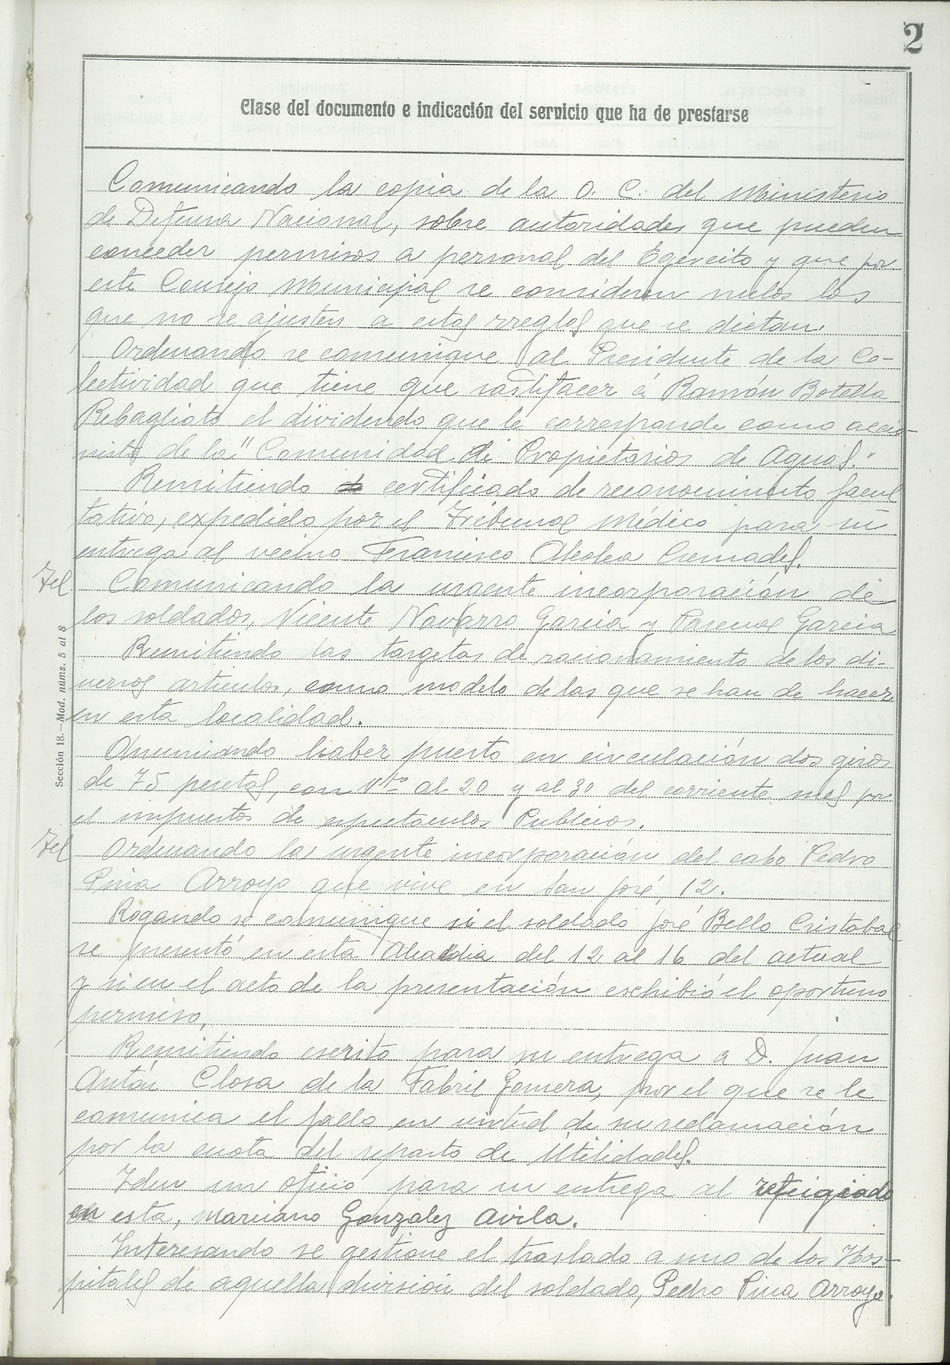 2
Clase del documento e indicación del servicio que ha de prestarse
Comunicando la copia de la O. C. del Ministerio
de Defensa Nacional, sobre autoridades que pueden
conceder permisos a personal del Egercito y que por
este Consejo Municipal se consideren nulos los
que no se ajusten a estas rreglas que se dictan.
Ordenando se comunique al Presidente de la Co-
lectividad que tiene que sastifacer á Ramón Botella
Rebagliato el dividendo que le corresponde como accio-
nista de la "Comunidad de Propietarios de Aguas."
Remitiendo certificado de reconocimiento facul
tativo, expedido por el Tribunal Médico para su
entrega al vecino Francisco Cremades.
Tel
Comunicando la urgente incorporación de
los soldados, Vicente Navarro Garcia y Pascual Garcia
Remitiendo las targetas de racionamiento de los di-
versos articulos, como modelo de las que se han de hacer
en esta localidad.
Sección 18.—Mod. núms. 5 al 8
Anunciando haber puesto en circulación dos giros
de 75 pesetas, con Vto al 20 y al 30 del corriente mes por
el impuestos de espectaculos Publicos.
Tel
Ordenando la urgente incorporación del cabo Pedro
Pina Arroyo que vive en San José, 12.
Rogando se comunique si el soldado José Bello Cristobal
se presentó en esta Alcaldia del 12 al 16 del actual
y si en el acto de la presentación exhibió el oportuno
permiso.
Remitiendo escrito para su entrega a D. Juan
Antón Closa de la Fabril Gomera, por el que se le
comunica el fallo en virtud de su reclamación
por la cuota del reparto de Utilidades.
Idem un oficio para su entrega al refugiado
en esta, Marciano Gonzalez Avila.
Interesando se gestione el traslado a uno de los Hos-
pitales de aquella división del soldado, Pedro Pina Arroyo.